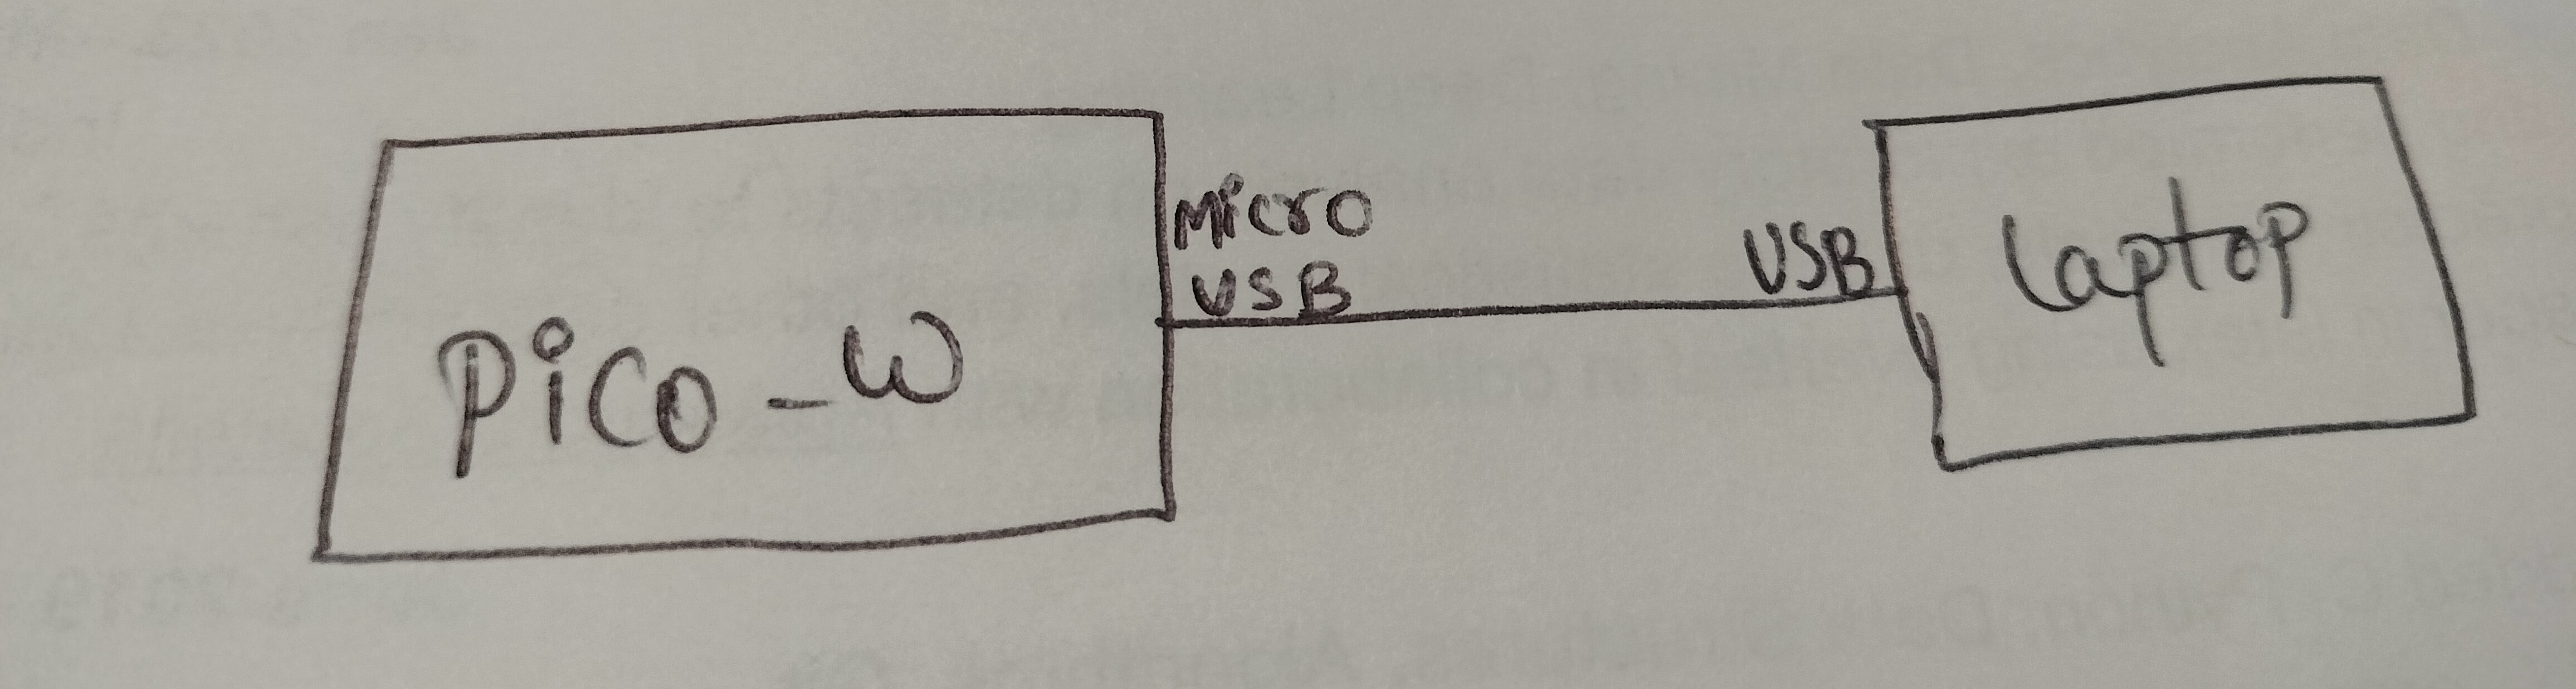 Pico_W
Micro
USB
USB
Laptop